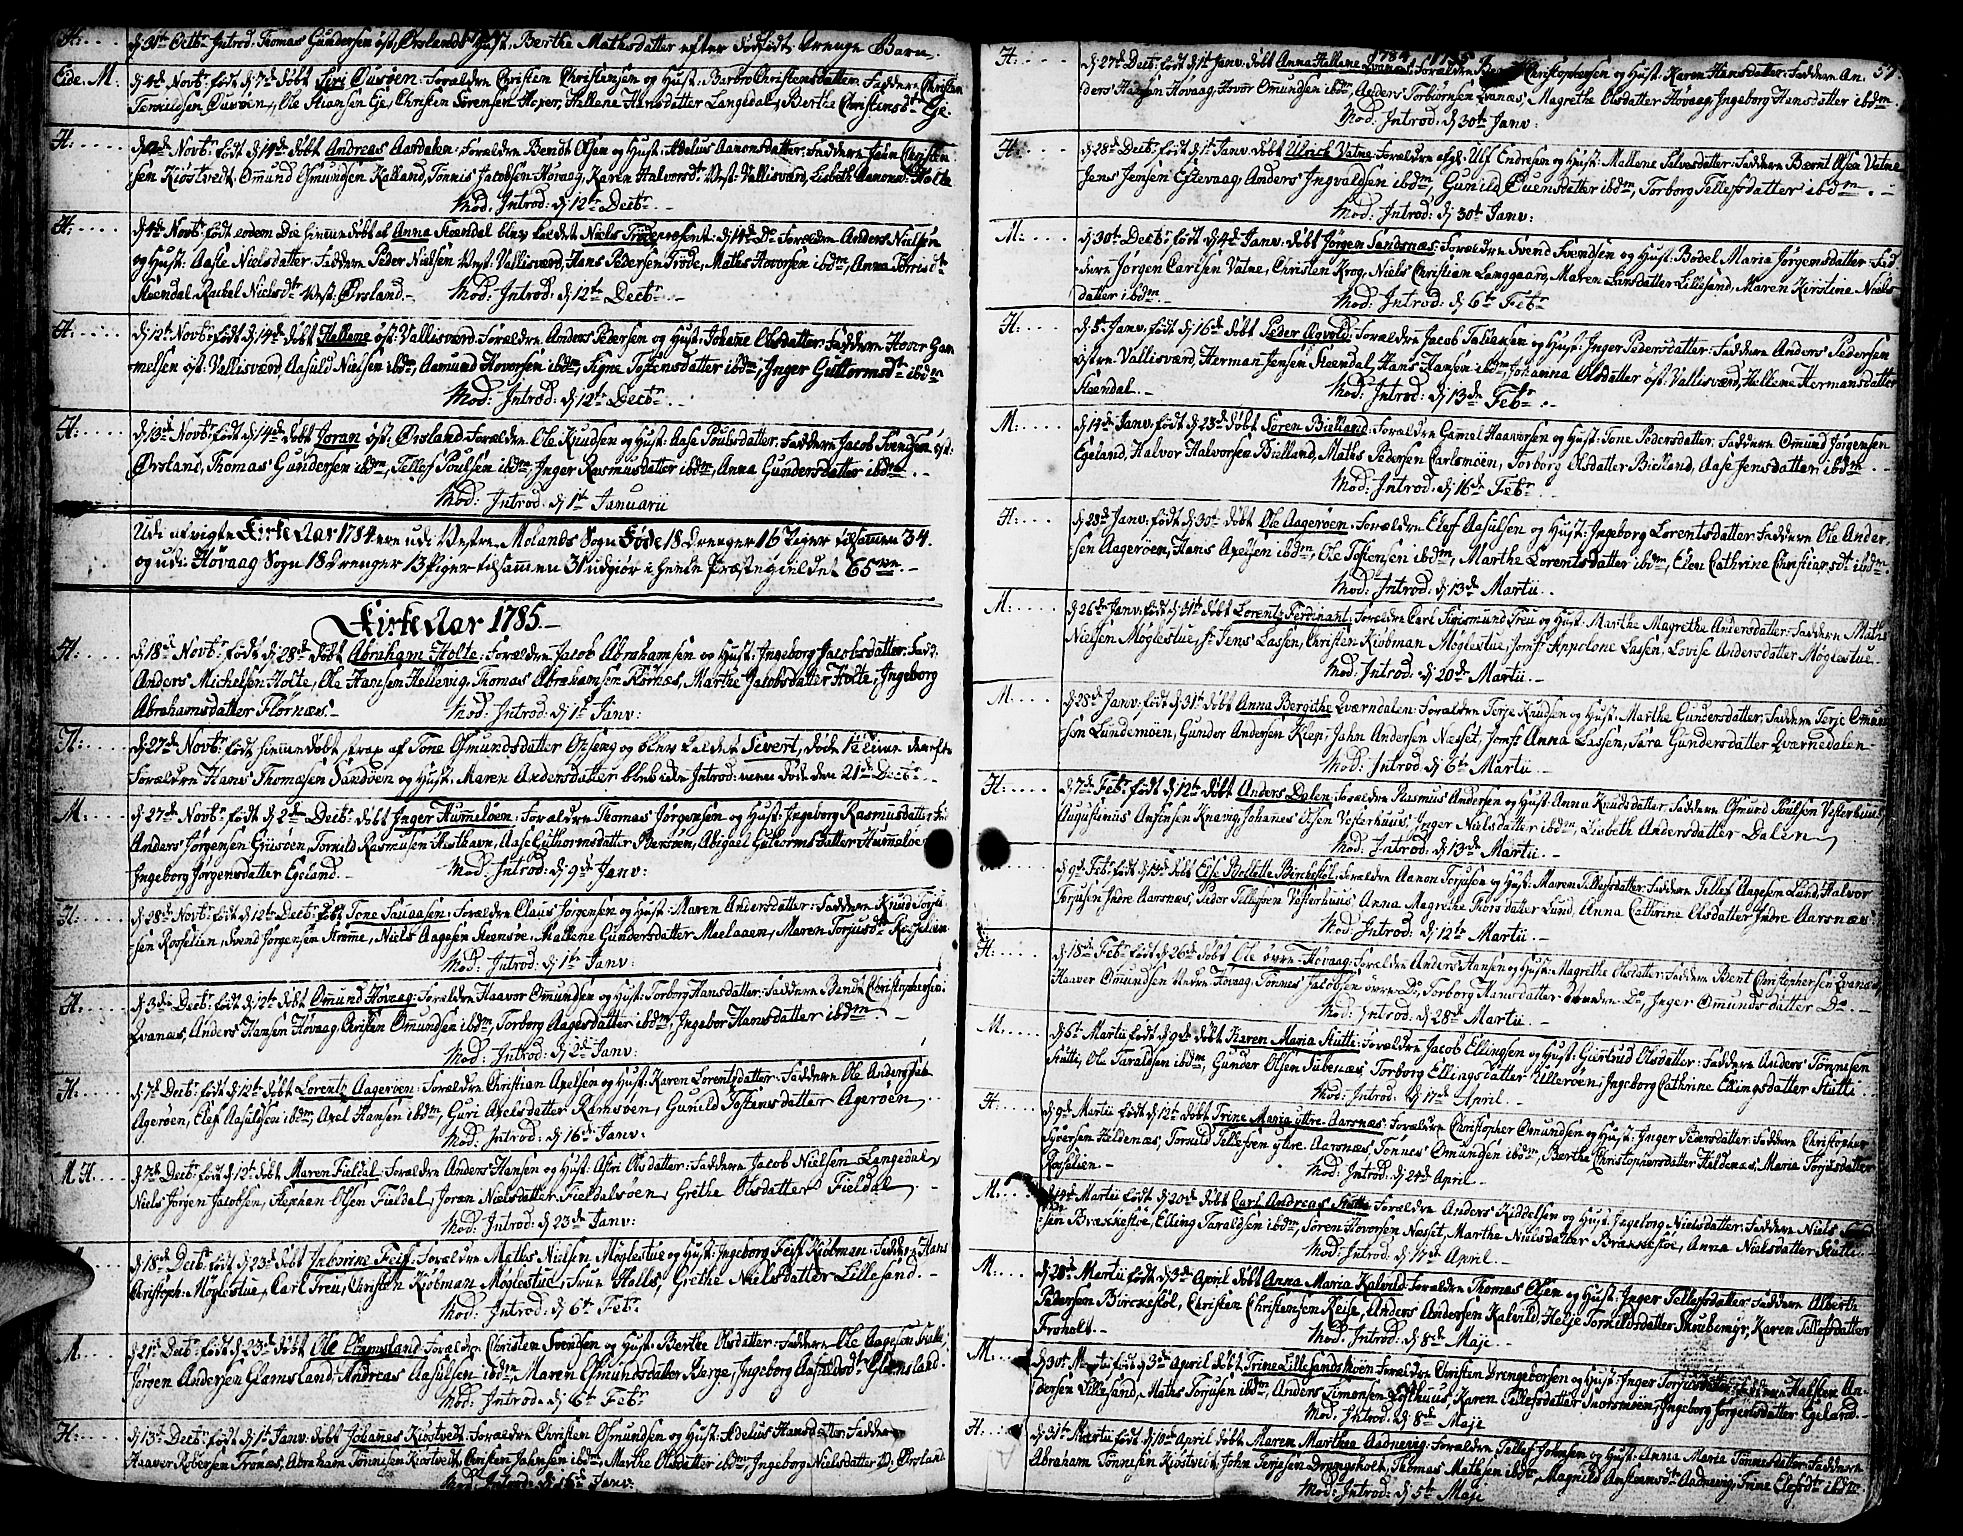 H: d 31t Octbr Introd: Thomas Gundersen øst, Ørslands Hust. Berthe Mathsdatter efter dødfødt Drenge Barn.
Eide. M. d 4d Novbr: født d 7d døbt Siri Ousøen: Forældre Christen Christensen og Hust: Barbro Christensdatter: Faddere Christen
Terkildsen Ousøen, Ole Stiansen Eje, Christen Sörensen Hoxer, Hellene Hansdatter Langedal, Berthe Christensdr Eje.
H: d 2d Novbr født d 14d døbt Andreas Aasdalen: Forældre Bendt Olsen og Hust: Adelus Aanonsdatter: Faddere Jahn Christen
sen Kiöstvedt, Omund Osmundsen Kalland, Tönnis Jacobsen Hövaag, Karen Halvorsdr Vest: Vallisværd, Lisbeth Aanonsdr Holte
Mod: Introd: d 12te Decbr
H: d 4d Novbr: født eodem Die hiemmedøbt af Anna Steendal blev kaldet Niels Trøde præsent: d 14d Do Forældre Anders Nielsen
og Hust: Aasle Nielsdatter: Faddere Peder Nielsen Vest: Vallisværd, Hans Pedersen Trøde, Maths Hovorsen ibdm, Anna Torrisdr
Steendal, Rachel Nielsdr Vest: Ørsland. Mod: Introd: d 12te Decbr
H: d 12te Novbr: født d 14d døbt Hellene øst: Vallisværd: Forældre Anders Pedersen og Hust: Johanne Olsdatter: Faddere Hovor Gam
melsen øst: Vallisværd, Aasuld Nielsen ibdm, Aamund Hovorsen ibdm, Signe Tostensdatter ibdm, Inger Guttormsdr ibdm
Mod: Introd: d 12te Decbr
H: d 13d Novbr: født d 14d døbt Joran øst: Ørsland: Forældre Ole Knudsen og Hust: Aase Poulsdatter: Faddere Jacob Svendsen øst:
Ørsland, Thomas Gundersen ibdm, Tellef Poulsen ibdm, Inger Rasmusdatter ibdm, Anna Gundersdatter ibdm
Mod: Introd: d 1t Januarii
Udi afvigte Kirke Aar 1784 ere udi Vestre Molands Sogn Føde 18 Drenger 16 Piger tilsammen 34.
og udi Hövaag Sogn 18 Drenger 13 Piger tilsammen 31 udgiør i heele Præstegieldet 65ve.
Kirke Aar 1785.
H: d 18d Novbr: født d 28d døbt Abraham Holte: Forældre Jacob Abrahamsen og Hust: Ingeborg Jacobsdatter: Fadd:
Anders Michelsen Holte, Ole Hansen Hellevig, Thomas Abrahamsen Flørnæs, Marthe Jacobsdatter Holte, Ingeborg
Abrahamsdatter Flørnæs. Mod: Introd: d 1t Janv:
H: d 27d Novbr: født hiemmedøbt strax af Tone Osmundsdatter Opseng og blev kaldet Sivert, døde 1½ time derefter
Forældre Hans Thomasen Sandøen og Hust: Maren Andersdatter blev icke Introd: men døde den 21d Decbr
M: d 27d Novbr: født d 2d Decbr: døbt Inger Hummeløen: Forældre Thomas Jørgensen og Hust: Ingeborg Rasmusdatter: Fad
Anders Jørgensen Griisøen, Torkild Rasmusen Justhavn, Aase Guthormsdatter Bersøen, Abigael Guthormsdatter Hummeløe
Ingeborg Jørgensdatter Egeland. Mod: Introd: d 9d Janv:
H: d 28d Novbr: født d 12te Decbr: døbt Tone Sauaasen: Forældre Claus Jørgensen og Hust: Maren Andersdatter: Faddere Knud Torju
sen Rosselien, Svend Jørgensen Strømme, Niels Aagesen Steensøe, Mallene Gundersdatter Maelaaen, Maren Torjusdr Rosselien
Mod: Introd: d 1t Janv:
H: d 3de Decbr: født d 12te døbt Omund Hövaag: Forældre Haavor Omundsen og Hust: Torborg Hansdatter: Faddere Bendt Christophersen
Qvanæs, Anders Hansen Hövaag, Christen Omundsen ibdm, Torborg Aagesdatter ibdm, Ingebor Hansdatter ibdm
Mod: Introd: d 2d Janv:
H: d 7d Decbr: født d 12te døbt Lorentz Aagerøen: Forældre Christian Axelsen og Hust: Karen Lorentzdatter: Faddere Ole Andersen
Agerøen, Elef Aasuldsen ibdm, Axel Hansen ibdm, Guri Axelsdatter Ramsøen, Gunild Tostensdatter Agerøen
Mod: Introd: d 16d Janv:
M H. d 7d Decbr: født d 12te døbt Maren Fieldal: Forældre Anders Hansen og Hust: Astri Olsdatter: Faddere Jacob Nielsen Langedal
Niels Jørgen Jacobsen, Stephan Olsen Fieldal, Joran Nielsdatter Fieldalsøen, Grethe Olsdatter Fieldal
Mod: Introd: d 23d Janv:
M. d 18d Decbr: født d 23d døbt Inborine Feist: Forældre Maths Nielsen Møglestue og Hust: Ingeborg Feist Kiöbman: Faddere Hans
Christoph: Møglestue, Carl Treu, Christen Kiöbman Møglestue, Frue Halls, Grethe Nielsdatter Lillesand.
Mod: Introd: d 6te Febr
M. d 21d Decbr: født d 23d døbt Ole Glamsland: Forældre Christen Svendsen og Hust: Berthe Olsdatter: Faddere Ole Aagesen
Jørgen Andersen Glamsland, Andreas Aasulsen ibdm, Maren Osmundsdatter Berge, Ingeborg Aasuldsdr Glamsland.
Mod: Introd: d 6te Febr
H: d 13d Decbr: født d 1t Janv: døbt Johanes Kiöstvedt: Forældre Christen Osmundsen og Hust: Adelus Hansdatter: Faddere
Haaver Robersen Trønæs, Abraham Tönnisen Kiöstvedt, Christen Jahnsen ibdm, Marthe Olsdatter ibdm, Ingeborg Nielsdatter V: Ørsland
Mod: Introd: d 16d Janv:
1784, 1785 57.
H: d 27d Decbr: født d 1t Janv: døbt Anna Hellene Qvanæs: Forældre Bendt Christophersen og Hust: Karen Hansdatter: Faddere An
ders Hansen Hövaag, Hovor Omundsen ibdm, Anders Torbiørnsen Qvanæs, Magrethe Olsdatter Hövaag, Ingeborg Hansdatter ibdm
Mod: Introd: d 30te Janv:
H: d 28d Decbr: født d 1t Janv: døbt Ulrich Vatne: Forældre afgl: Ulf Endresen og Hust: Mallene Salvesdatter: Faddere Bernt Olsen Vatne
Jens Jensen Estevaag, Anders Ingvaldsen ibdm, Gunild Evensdatter ibdm, Torborg Tellefsdatter ibdm.
Mod: Introd: d 30te Janv:
M: d 30te Decbr: født d 4d Janv: døbt Jørgen Sandsnæs: Forældre Svend Svendsen og Hust: Bodel Maria Jørgensdatter: Fad
dere Jørgen Carlsen Vatne, Christen Krog, Niels Christian Langgaard, Maren Larsdatter Lillesand, Maren Kirstine Niels
datter ibdm. Mod: Introd: d 6te Febr
H: d 5te Janv: født d 16d døbt Peder Aavold: Forældre Jacob Tallaksen og Hust: Inger Pedersdatter: Faddere Anders Pedersen
østre Vallisværd, Herman Jensen Steendal, Hans Hansen ibdm, Johanna Olsdatter øst: Vallisværd, Hellene Hermansdatter
Steendal. Mod: Introd: d 13d Febr
M: d 14d Janv: født d 23d døbt Søren Bielland: Forældre Gamel Haavorsen og Hust: Tone Pedersdatter: Faddere Omund Jørgensen
Egeland, Halvor Halvorsen Bielland, Maths Pedersen Carlsmöen, Torborg Olsdatter Bielland, Aase Jensdatter ibdm.
Mod: Introd: d 16d Febr
H: d 28d Janv: født d 30te døbt Ole Aagerøen: Forældre Elef Aasulsen og Hust: Ingeborg Lorentsdatter: Faddere Ole Ander
sen Aagerøen, Hans Axelsen ibdm, Ole Tostensen ibdm, Marthe Lorentsdatter ibdm, Elen Cathrine Christiansdr ibdm.
Mod: Introd: d 13de Martii
M: d 26d Janv: født d 31t døbt Lorentz Ferdinant: Forældre Carl Sigismund Treu og Hust: Marthe Magrethe Andersdatter: Faddere Maths
Nielsen Møglestue, Sr Jens Lassen, Christen Kiöbman Møglestue, Jomfr Appolone Lassen, Lovise Andersdatter Møglestue.
Mod: Introd: d 20de Martii
M: d 28d Janv: født d 31t døbt Anna Bergithe Qværndalen: Forældre Terje Knudsen og Hust: Marthe Gundersdatter: Faddere Terje Omund
sen Lundemöen, Gundor Andersen Kiep, Jahn Andersen Næsset, Jomfr Anna Lassen, Sara Gundersdatter Qvarnedalen
Mod: Introd: d 6te Martii
H: d 7d Febr: født d 12te døbt Anders Dalen: Forældre Rasmus Andersen og Hust: Anna Knudsdatter: Faddere Osmund Poulsen Vesterhuus
Augustinus Ansinsen Knavig, Johanes Olsen Vesterhuus, Inger Nielsdatter ibdm, Lisbeth Andersdatter Dalen
Mod: Introd: d 13de Martii
d 9d Febr: født d 13d døbt Else Bolette Birkestöl: Forældre Aanon Torjusen og Hust: Maren Tellefsdatter: Faddere Tellef Aagesen Lund, Halvor
Torjusen Indre Aarsnæs, Peder Tellefsen Vesterhuus, Anna Magrethe Thorsdatter Lund, Anna Cathrine Olsdatter Indre Aarsnæs
Mod: Introd: d 12te Martii
H: d 18d Febr: født d 26d døbt Ole øvre Hövaag: Forældre Anders Hansen og Hust: Magrethe Olsdatter: Faddere Bent Christophersen Qvanæs,
Haaver Omundsen Nedre Hövaag, Tönnes Jacobsen øvre Do, Torborg Hansdatter Nedre Do, Inger Omundsdatter Do.
Mod: Introd: d 28d Martii
M. d 6te Martii født d 9d døbt Karen Maria Stutte: Forældre Jacob Ellingsen og Hust: Giertrud Olsdatter: Faddere Anders Tönnisen
Stutte, Ole Taraldsen ibdm, Gunder Olsen Tubenæs, Torborg Ellingsdatter Ullerøen, Ingeborg Cathrine Ellingsdatter Stutte
Mod: Introd: d 17d April
H. d 9d Martii født d 12te døbt Trine Maria yttre Aarsnæs: Forældre Christopher Omundsen og Hust: Inger Pedersdatter: Faddere Christopher
Syversen Heldenæs, Torkild Tellefsen ytre Aarsnæs, Tönnes Omundsen ibdm, Berthe Christophersdatter Heldenæs, Maria Torjusdatter
Rosselien. Mod: Introd: d 24d April
M. d 14d Martii født d 20de døbt Carl Andreas Stutte: Forældre Anders Kiddelsen og Hust: Ingeborg Nielsdatter: Faddere Niels
sen Brækkestöe, Elling Taraldsen ibdm, Sören Hovorsen Nasset, Marthe Nielsdatter Brækkestöe, Anna Nielsdatter Stutte
Mod: Introd: d 17d April
M. d 28d Martii født d 3d April døbt Anna Maria Kalvild: Forældre Thomas Olsen og Hust: Inger Tellefsdatter: Faddere Alberth
Pedersen Birckestöl, Christen Christensen Keise, Anders Andersen Kalvild, Helje Torkildsdatter Skrubemyr, Karen Tellefsdatter
Froholt. Mod: Introd: d 8d Maje
M. d 30te Martii født d 3d April døbt Trine Lillesandsmoen: Forældre Christen Drengeborsen og Hust: Inger Torjusdatter: Faddere Halsten An
dersen Lillesand, Maths Torjusen ibdm, Anders Simonsen Losthuus, Karen Tellefsdatter Snorsmöen, Ingeborg Jörgensdatter Egeland
Mod: Introd: d 8d Maje
H: d 31te Martii født d 10d April døbt Maren Marthea Aadnevig: Forældre Tellef Johnsen og Hust: Anna Maria Tönnesdatter: Faddere
Abraham Tönnesen Kiöstvedt, John Terjesen Drangsholt, Thomas Mathsen ibdm, Magnild Anstensdr Aadnevig, Trine Elefsdr ibdm
Mod: Introd: d 5te Maje